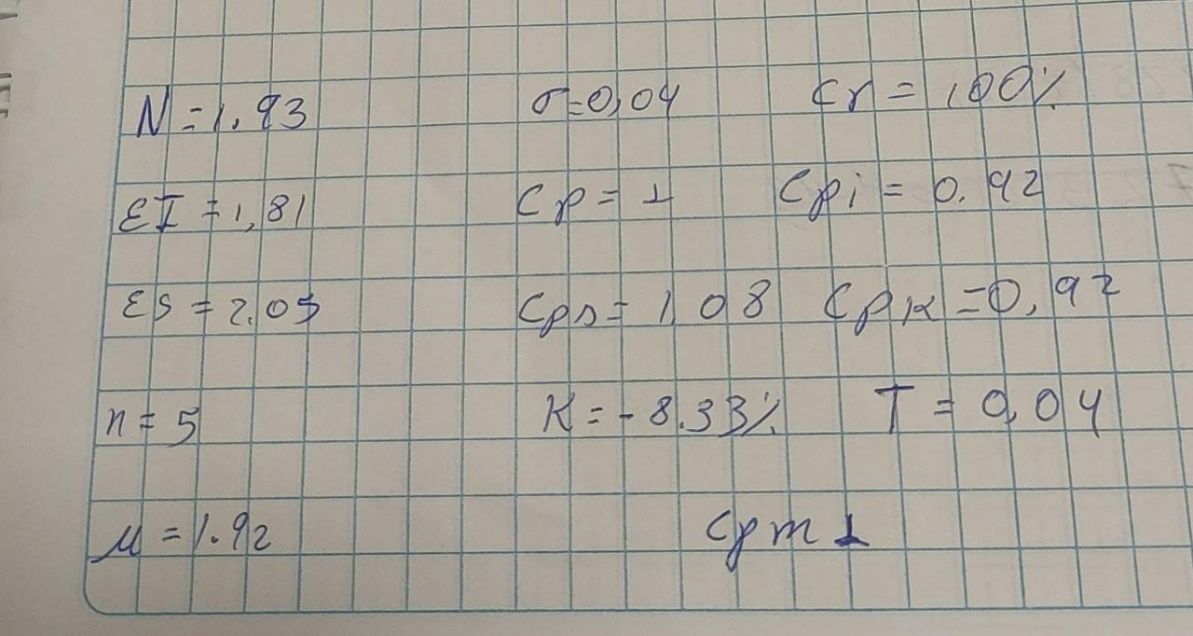 N = 1.93 σ=0,04 Cr = 100%
EI = 1,81 Cp = 1 Cpi = 0.92
ES = 2.05 Cps = 1,08 Cpk = 0,92
n = 5 K = -8.33% T = 0,04
μ = 1.92 Cpm 1